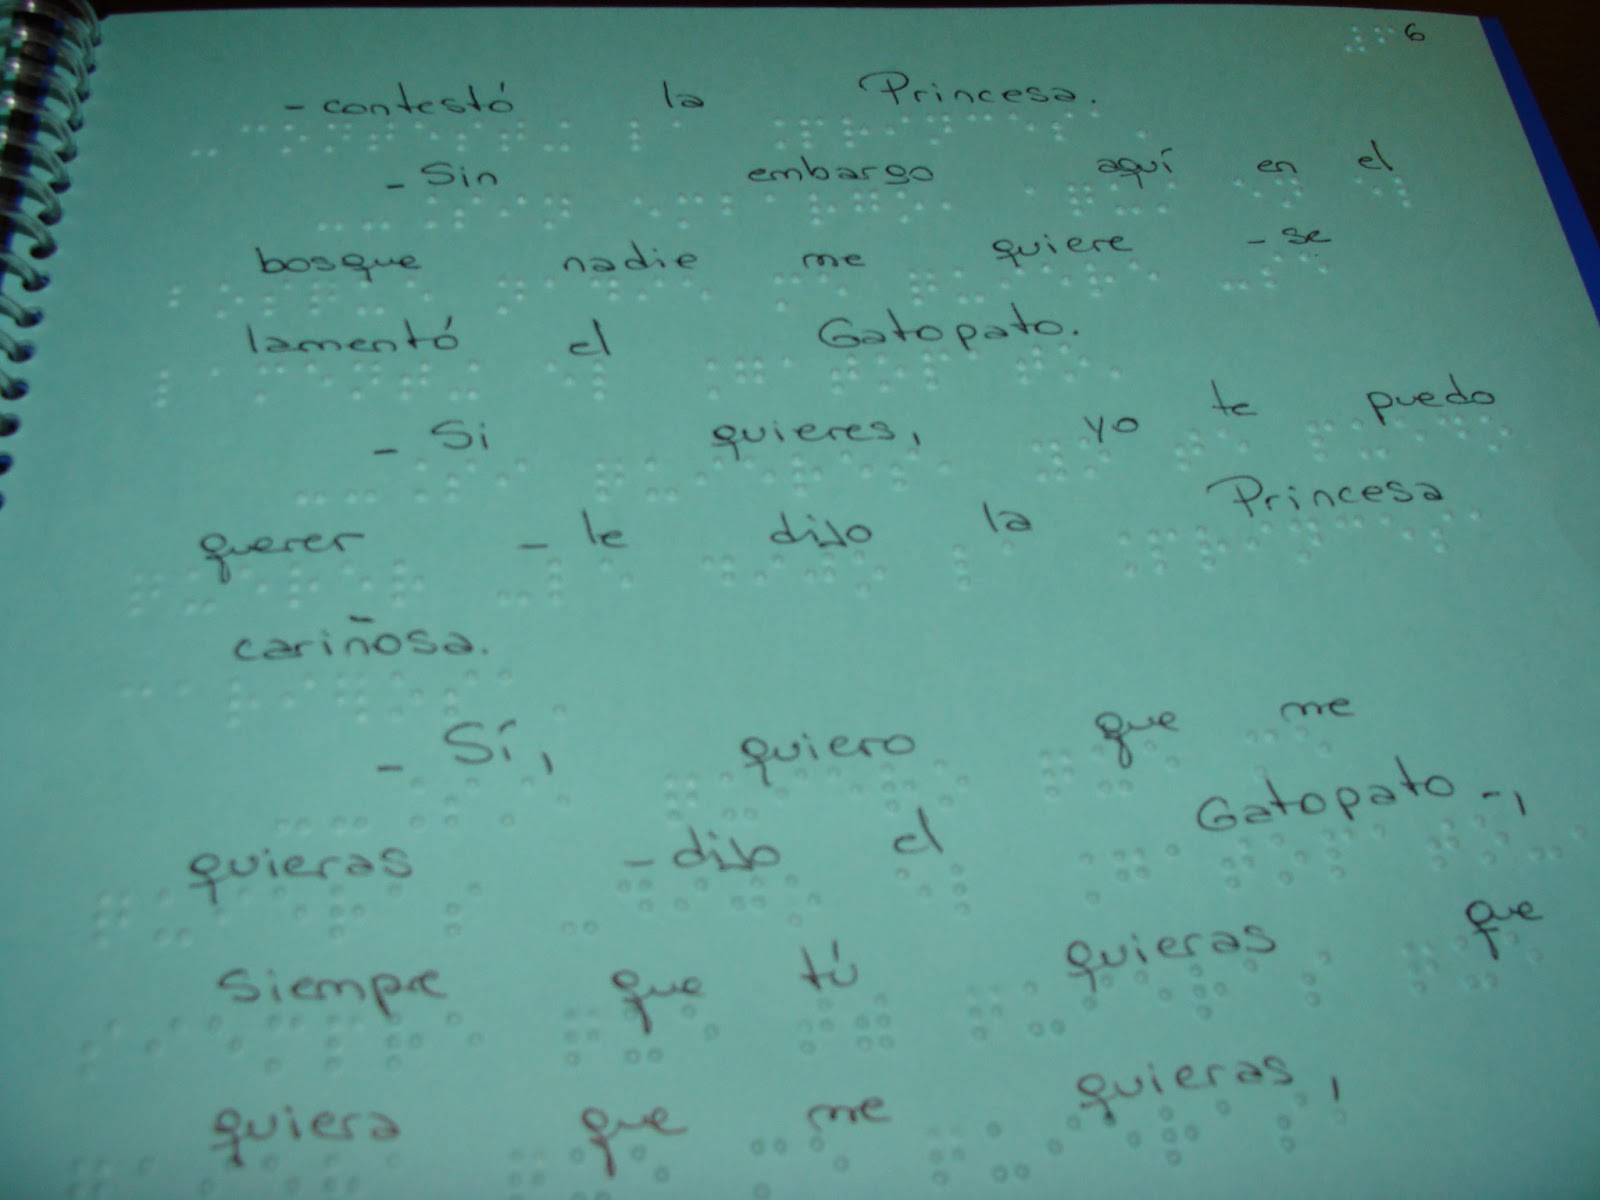 6
- contestó la Princesa.
- Sin embargo aquí en el
bosque nadie me quiere - se
lamentó el Gatopato.
- Si quieres, yo te puedo
querer - le dijo la Princesa
cariñosa.
- Sí, quiero que me
quieras - dijo el Gatopato -,
siempre que tú quieras que
quiera que me quieras,